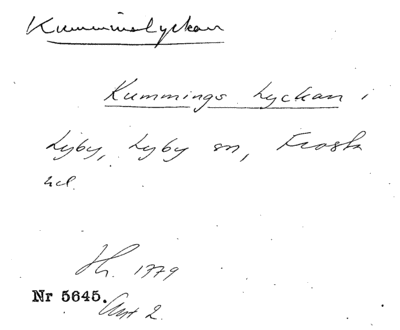 Kummingslyckan
Kummings Lyckan i
Lyby, Lyby sn, Frosta
hd.
Hr. 1779
Nr 5645. Anm 2.